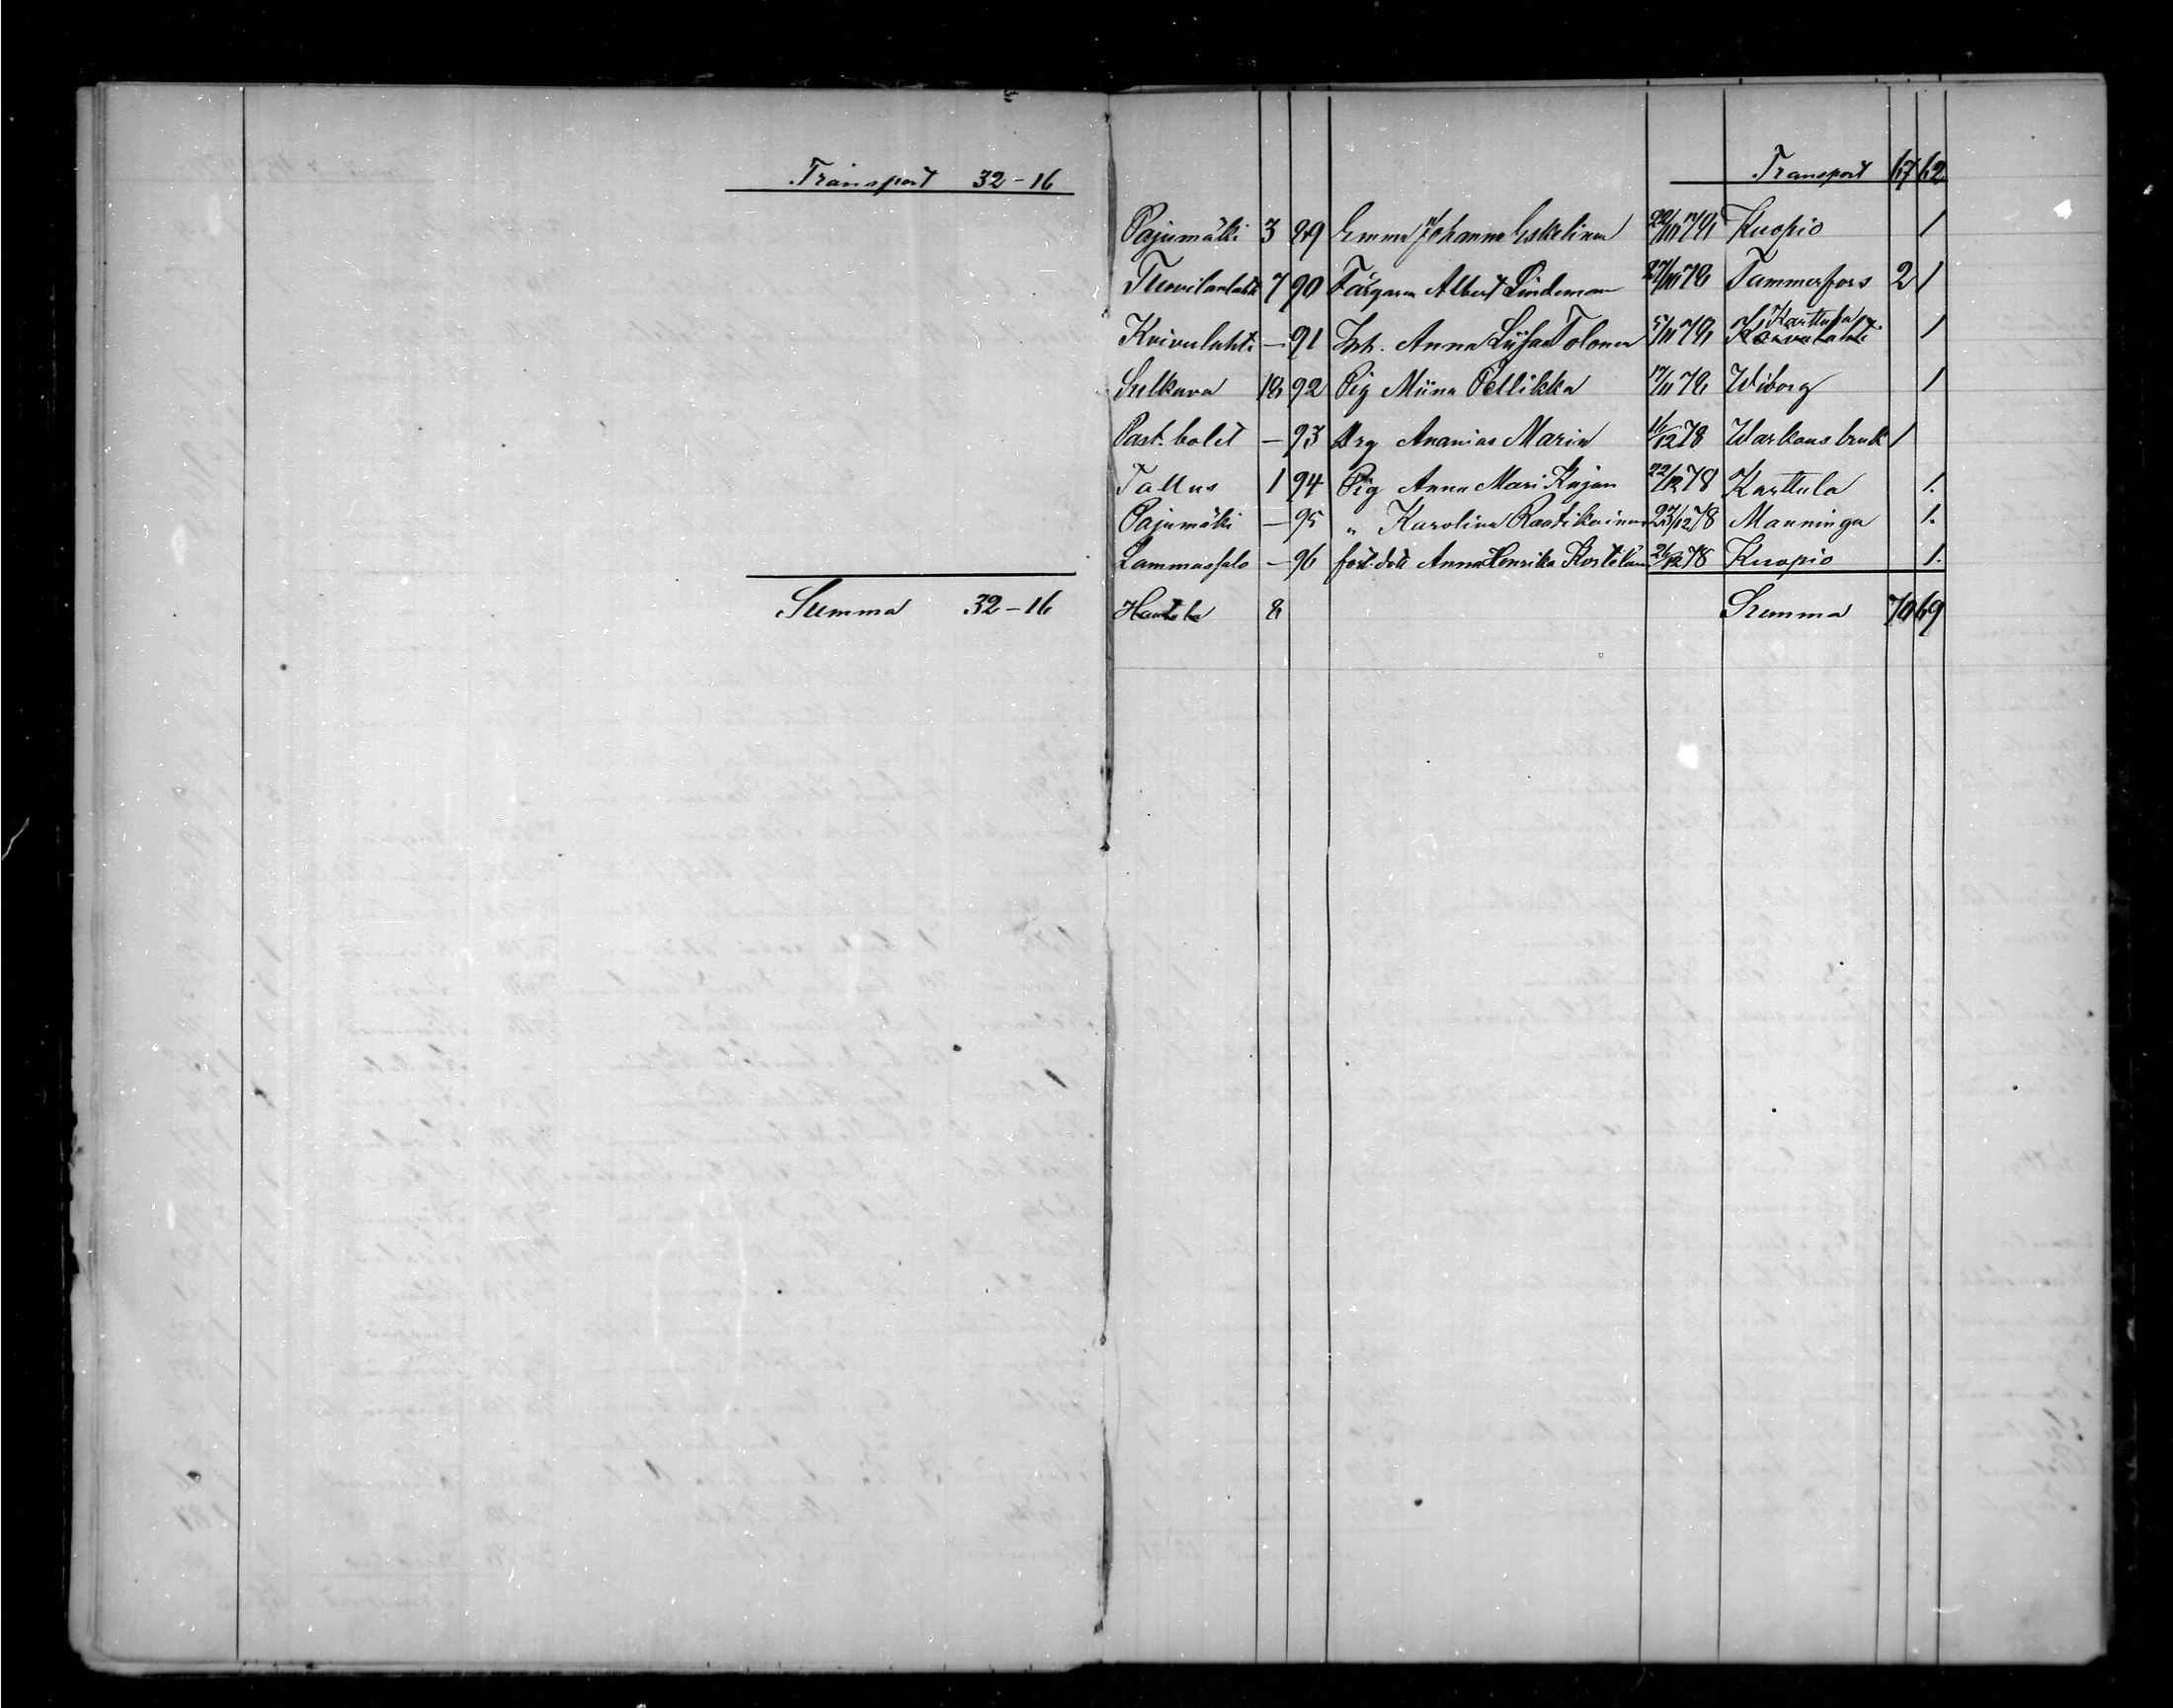 Transport 32-16
Summa 32-16
Transport 67 62
Pajumäki 3 89 Emma Johanna Eskelinen 22/10 78 Kuopio 1
Tuovilanlahti 7 90 Färgaren Albert Lindeman 27/10 78 Tammerfors 2 1
Karttula
Koivulahti - 91 Inh. Anna Liisa Tolonen 5/11 78 1
Sulkava 18 92 Pig Miina Pellikka 17/11 78 Wiborg 1
Past. bolet - 93 Drg Ananias Marin 16/12 78 Warkaus bruk 1
Tallus 1 94 Pig Anna Mari Kajan 22/12 78 Karttula 1.
Pajumäki - 95 " Karolina Raatikainen 23/12 78 Maaninga 1.
Lammassalo - 96 Anna Henrika 26/12 78 Kuopio 1.
Hautola 8 Summa 70 69